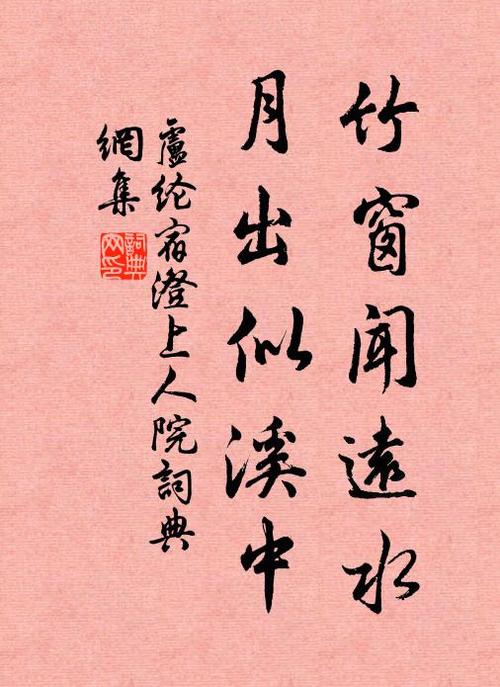 竹窗闻遠水
月出似溪中
盧纶宿澄上人院詞典
網集
詞典
网印